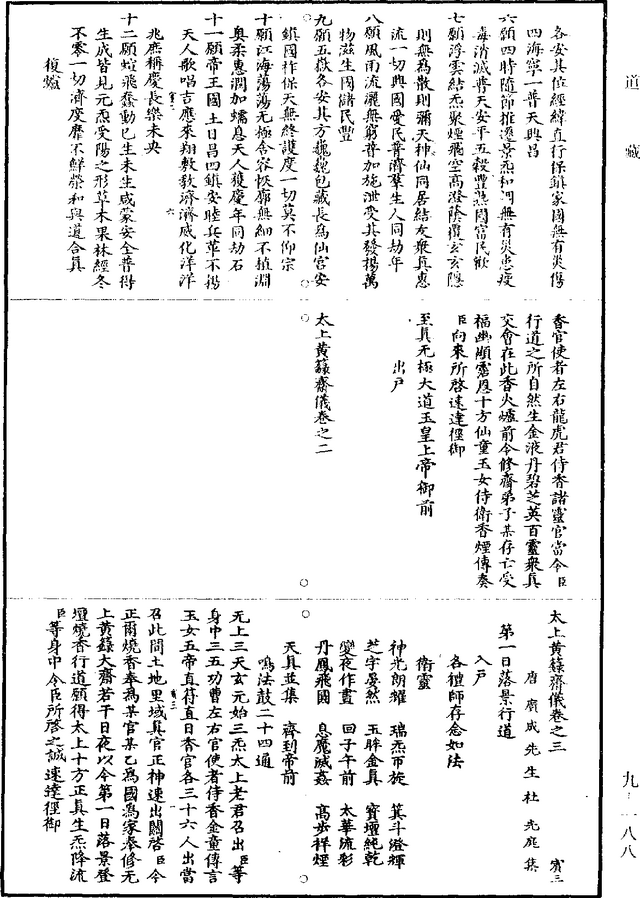 道藏
各安其位經緯直行保鎮家國無有災傷
四海寧一普天興昌
六願四時隨節推遷景炁和同無有災患疫
毒消滅普天安平五穀豐熟闔宮民歡
七願浮雲結炁聚煙飛空高澄蔭覆玄玄隱
則無為散則彌天神仙同居結友衆真惠
流一切興國愛民普濟羣生人同劫年
八願風雨流灑無窮普加施泄受其發揚萬
物滋生國儲民豐
九願五嶽各安其方巍巍包藏長為仙宮安
鎮國祚保天無終護度一切莫不仰宗
十願江海蕩蕩無極含容恢廓無細不植淵
奧柔惠潤加蠕息天人獲慶年同劫石
十一願帝王國土日昌四鎮安睦兵革不揚
天人歌唱吉應來翔敷教濟濟咸化洋洋
兆庶稱慶長樂未央
十二願蝖飛蠢動已生未生咸蒙安全普得
生成皆見元炁受陽之形草木果林經冬
不零一切濟度靡不鮮榮和與道合真
復爐
香官使者左右龍虎君侍香諸靈官當令臣
行道之所自然生金液丹碧芝英百靈衆真
交會在此香火爐前令修齋弟子某存亡受
福幽顯霑恩十方仙童玉女侍衛香煙傳奏
臣向來所啓速達徑御
至真无極大道玉皇上帝御前
出戶
太上黃籙齋儀卷之二
太上黃籙齋儀卷之三 賓三
唐廣成先生杜光庭集
第一日落景行道
入戶
各禮師存念如法
衛靈
神光朗耀 瑞炁帀旋 箕斗澄輝
芝宇晏然 玉眸金真 寶壇純乾
變夜作晝 回子午前 太華流彩
丹鳳飛國 息魔滅姦 高步祥煙
天真並集 齊到帝前
鳴法鼓二十四通
无上三天玄元始三炁太上老君召出臣等
身中三五功曹左右官使者侍香金童傳言
玉女五帝直符直日香官各三十六人出當
召此間土地里域真官正神速出關啓臣今
正爾燒香奉為某官某乙為國為家奉修无
上黃籙大齋若干日夜以今第一日落景登
壇燒香行道願得太上十方正真生炁降流
臣等身中令臣所啓之誠速達徑御
九‧一八八